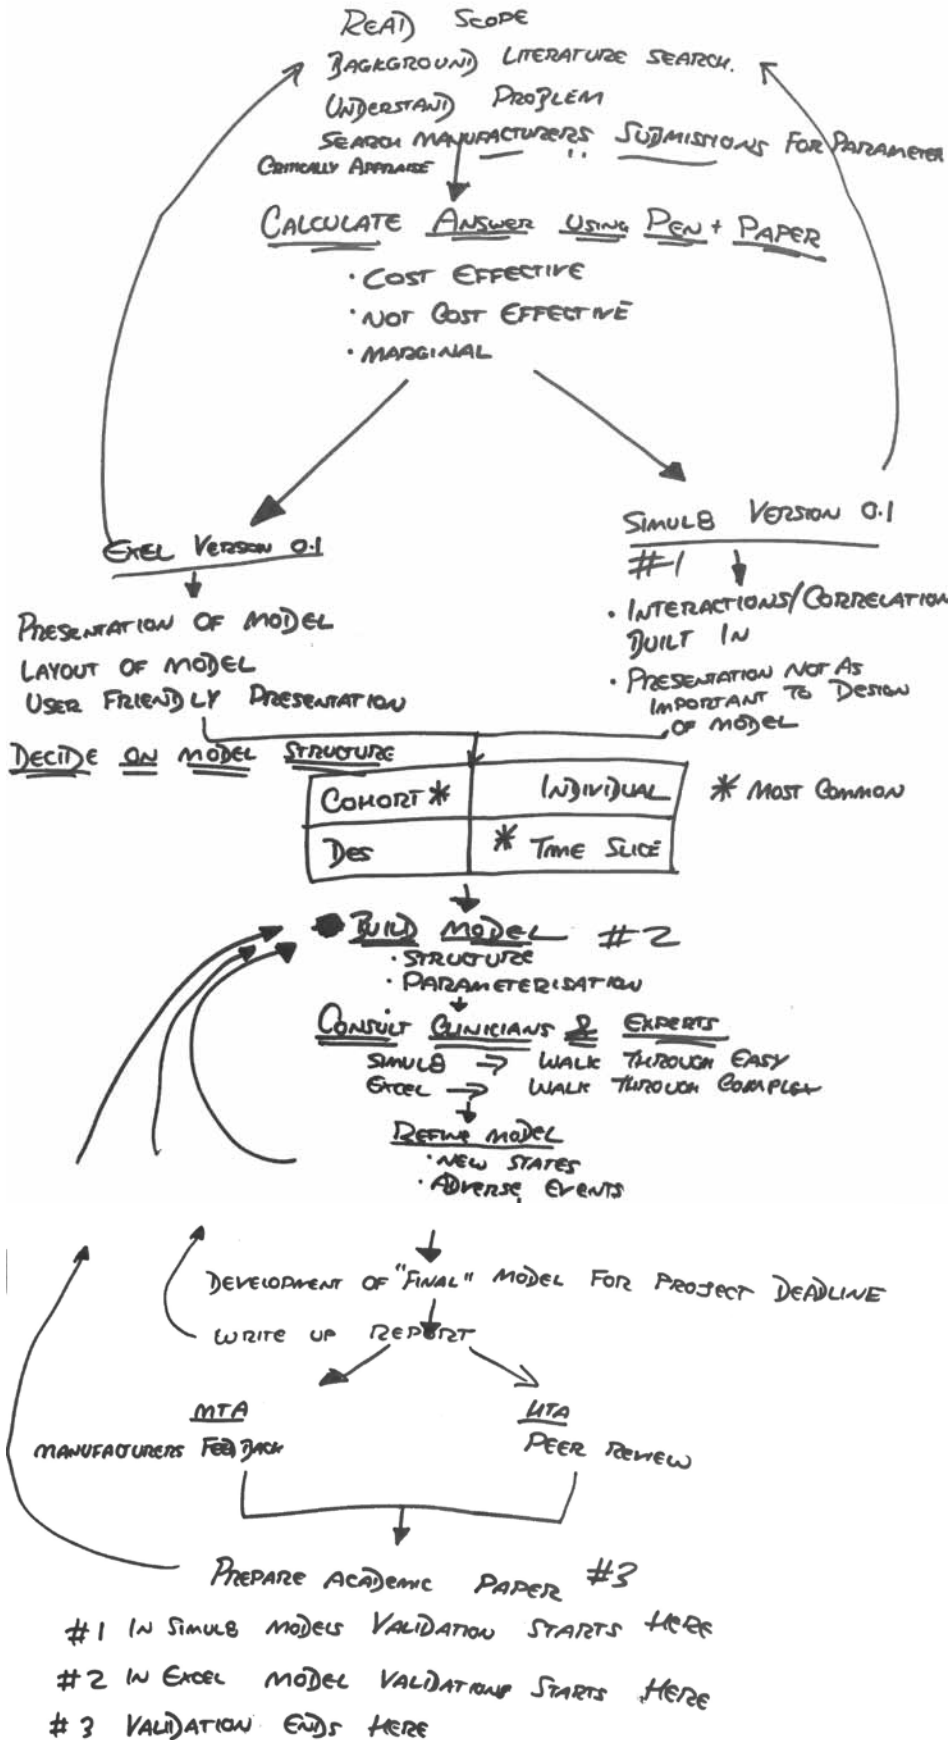 READ SCOPE
BACKGROUND LITERATURE SEARCH.
UNDERSTAND PROBLEM
SEARCH MANUFACTURERS SUBMISSIONS FOR PARAMETER
CRITICALLY APPRAISE
CALCULATE ANSWER USING PEN + PAPER
· COST EFFECTIVE
· NOT COST EFFECTIVE
· MARGINAL
EXEL VERSION 0.1
SIMUL8 VERSION 0.1
#1
PRESENTATION OF MODEL
LAYOUT OF MODEL
USER FRIENDLY PRESENTATION
· INTERACTIONS/CORRELATION
BUILT IN
· PRESENTATION NOT AS
IMPORTANT TO DESIGN
OF MODEL
DECIDE ON MODEL STRUCTURE
COHORT * INDIVIDUAL
* MOST COMMON
DES * TIME SLICE
BUILD MODEL #2
· STRUCTURE
· PARAMETERISATION
CONSULT CLINICIANS & EXPERTS
SIMUL8 → WALK THROUGH EASY
EXCEL → WALK THROUGH COMPLEX
REFINE MODEL
· NEW STATES
· ADVERSE EVENTS
DEVELOPMENT OF "FINAL" MODEL FOR PROJECT DEADLINE
WRITE UP REPORT
MTA
MANUFACTURERS FEEDBACK
HTA
PEER REVIEW
PREPARE ACADEMIC PAPER #3
#1 IN SIMUL8 MODELS VALIDATION STARTS HERE
#2 IN EXCEL MODEL VALIDATIONS STARTS HERE
#3 VALIDATION ENDS HERE